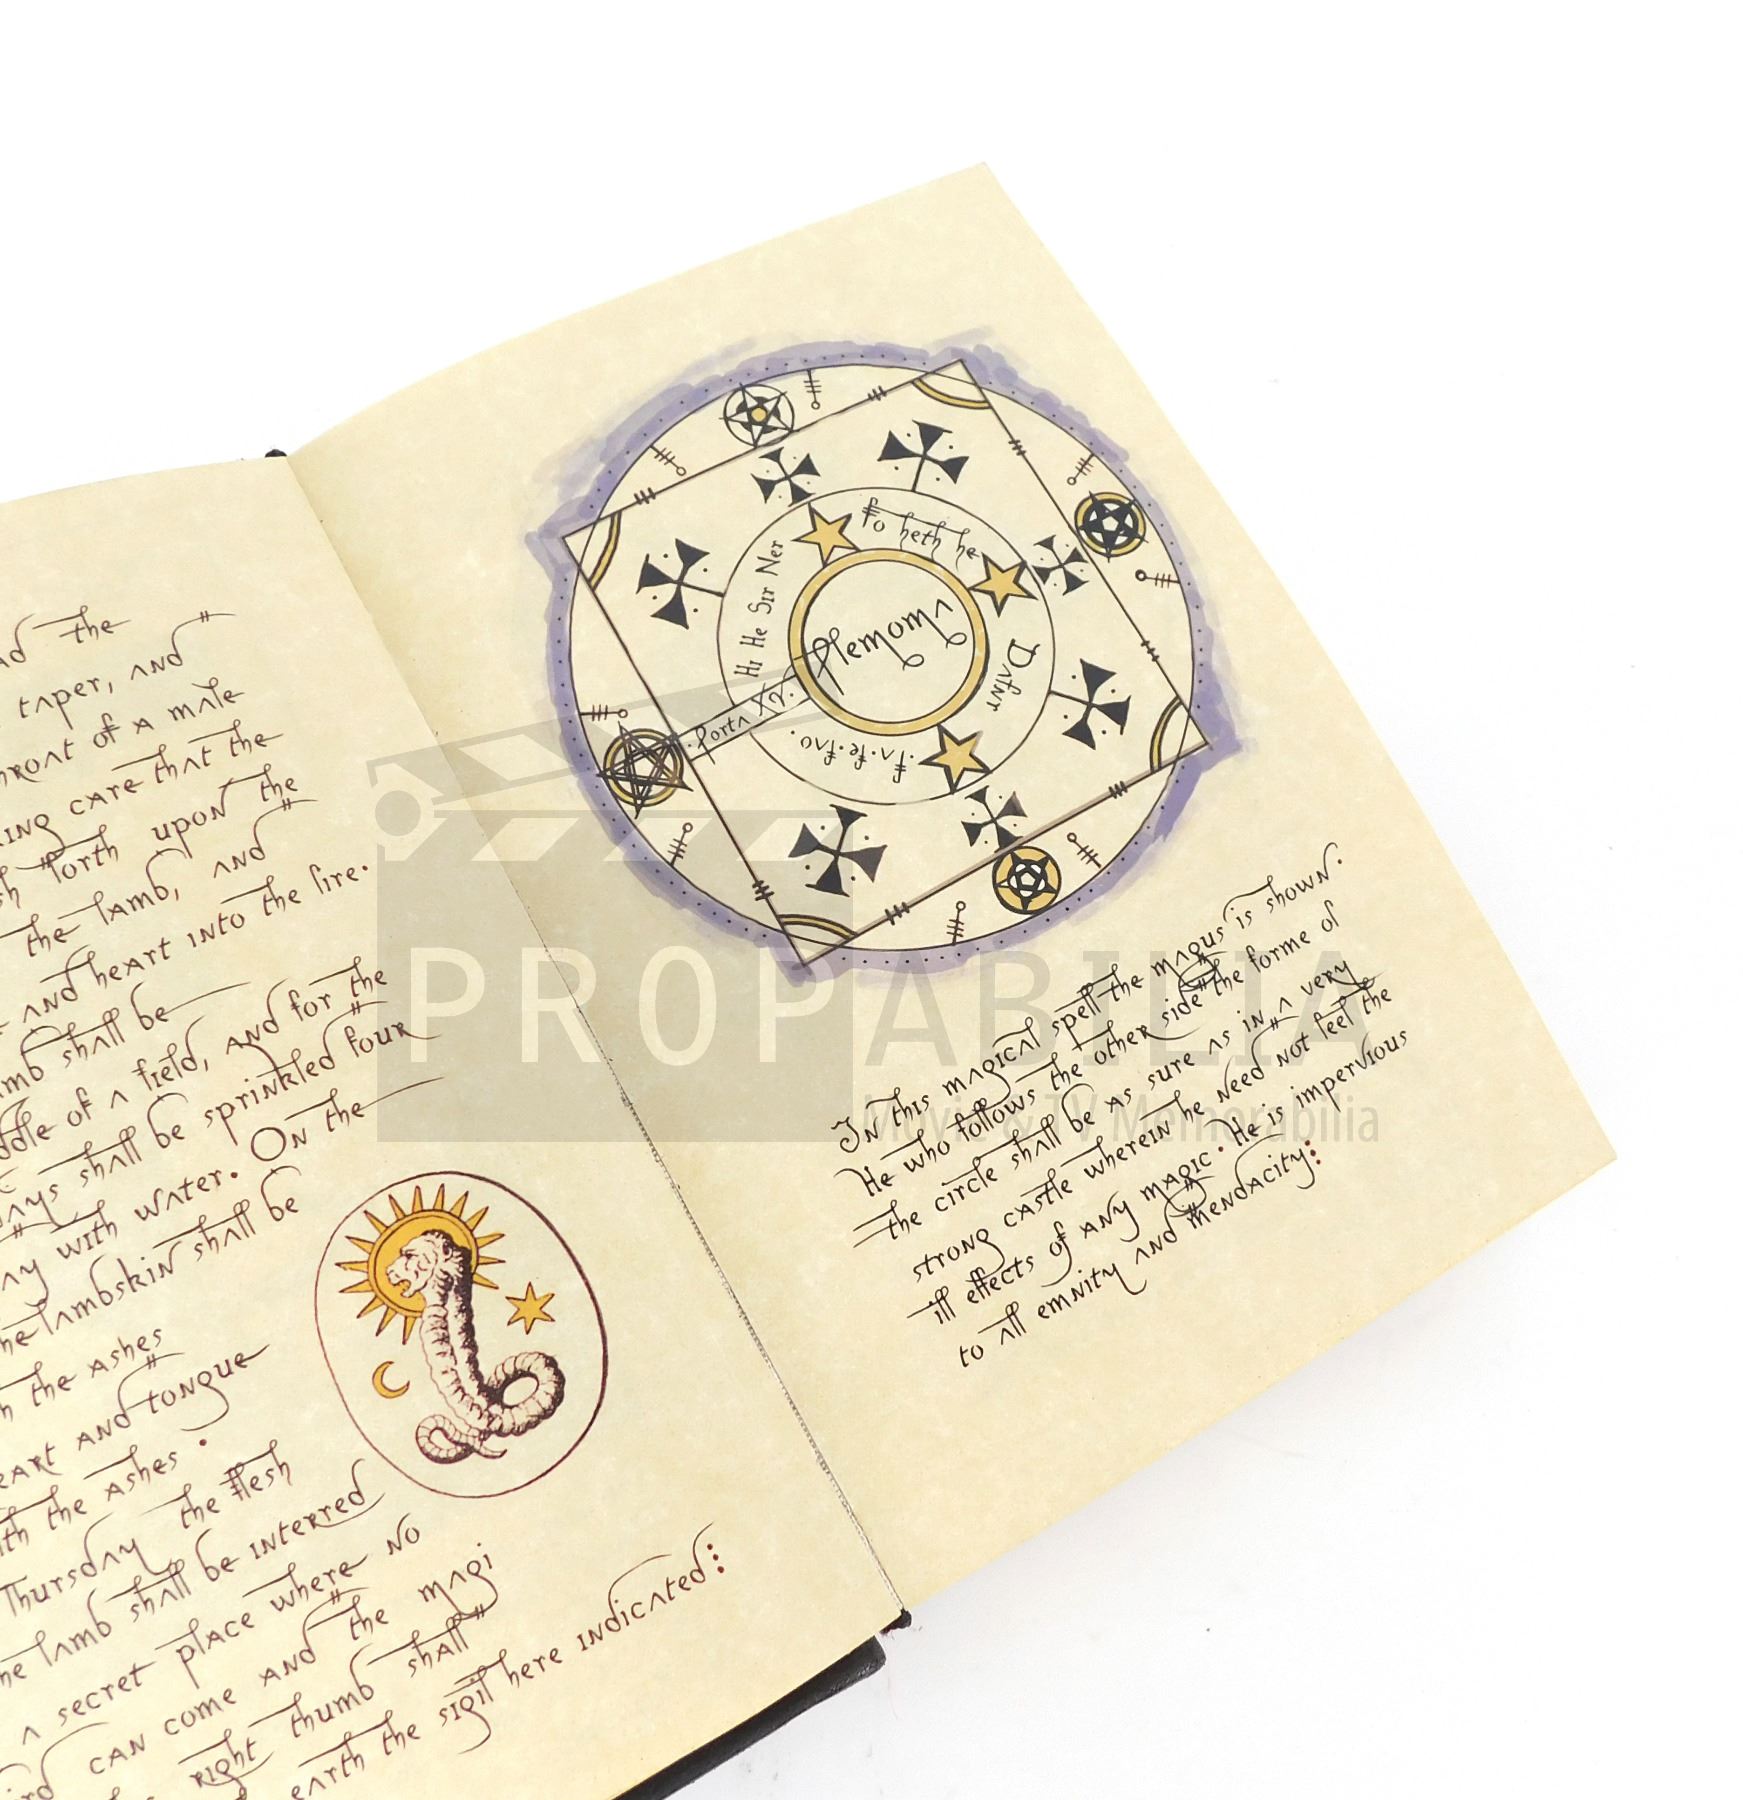 the
taper, and
throat of a male
care that the
forth upon the
the lamb, and
and heart into the fire.
lamb shall be
middle of a field, and for the
days shall be sprinkled four
with water. On the
the lambskin shall be
the ashes
heart and tongue
with the ashes.
Thursday the flesh
the lamb shall be interred
a secret place where no
can come and the magi
right thumb shall
earth the sigil here indicated:
fo heth he
Hi He Sir Ner
Alemomi
Porta XV.
.fa.fe.fao.
In this magical spell the magus is shown.
He who follows the other side the forme of
the circle shall be as sure as in a very
strong castle wherein he need not feel the
ill effects of any magic. He is impervious
to all emnity and mendacity:
PROPABILIA
Movie & TV Memorabilia